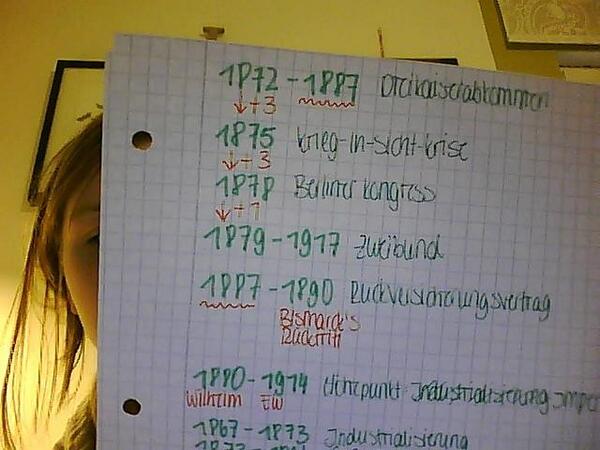 1872 - 1887 Dreikaiserabkommen
↓ + 3
1875 Krieg-in-Sicht-Krise
↓ + 3
1878 Berliner Kongress
↓ + 1
1879 - 1917 Zweibund
1887 - 1890 Rückversicherungsvertrag
Bismarck's
Rücktritt
1880 - 1914 Höhepunkt Industrialisierung
Wilhelm EW
1867 - 1873 Industrialisierung